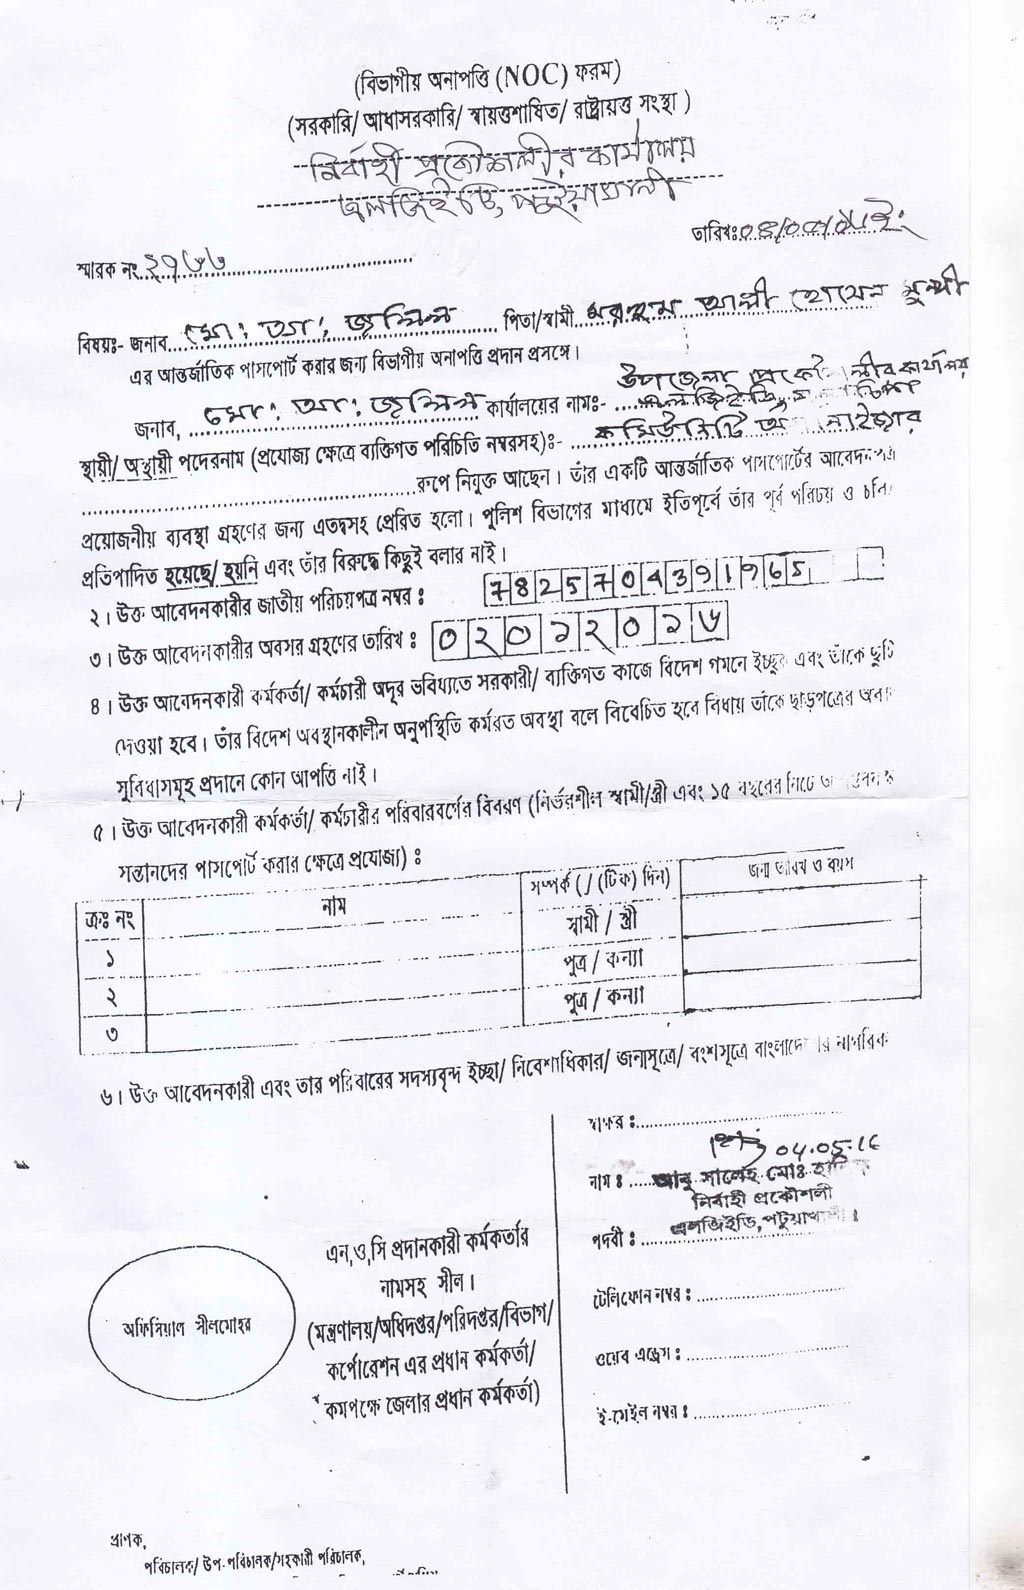 (বিভাগীয় অনাপত্তি (NOC) ফরম)
(সরকারি/ আধাসরকারি/ স্বায়ত্তশাষিত/ রাষ্ট্রায়ত্ত সংস্থা )
নির্বাহী প্রকৌশলীর কার্যালয়
এলজিইডি, পটুয়াখালী
তারিখঃ
স্মারক নং
বিষয়ঃ- জনাব মোঃ আঃ জলিল পিতা/স্বামী মরহুম আলী হোসেন মুন্সী
এর আন্তর্জাতিক পাসপোর্ট করার জন্য বিভাগীয় অনাপত্তি প্রদান প্রসঙ্গে।
জনাব, মোঃ আঃ জলিল কার্যালয়ের নামঃ- উপজেলা প্রকৌশলীর কার্যালয়
এলজিইডি,
স্থায়ী/ অস্থায়ী পদেরনাম (প্রযোজ্য ক্ষেত্রে ব্যক্তিগত পরিচিতি নম্বরসহ)ঃ- কমিউনিটি অর্গানাইজার
রূপে নিযুক্ত আছেন। তাঁর একটি আন্তর্জাতিক পাসপোর্টের আবেদনপত্র
প্রয়োজনীয় ব্যবস্থা গ্রহণের জন্য এতদ্বসহ প্রেরিত হলো। পুলিশ বিভাগের মাধ্যমে ইতিপূর্বে তাঁর পূর্ব পরিচয় ও
প্রতিপাদিত হয়েছে/ হয়নি এবং তাঁর বিরুদ্ধে কিছুই বলার নাই।
২। উক্ত আবেদনকারীর জাতীয় পরিচয়পত্র নম্বর : 7825704391965
৩। উক্ত আবেদনকারীর অবসর গ্রহণের তারিখ :
৪। উক্ত আবেদনকারী কর্মকর্তা/ কর্মচারী অদূর ভবিষ্যতে সরকারী/ ব্যক্তিগত কাজে বিদেশ গমনে ইচ্ছুক এবং তাঁকে ছুটি
দেওয়া হবে। তাঁর বিদেশ অবস্থানকালীন অনুপস্থিতি কর্মরত অবস্থা বলে বিবেচিত হবে বিধায় তাঁকে ছাড়পত্রের
সুবিধাসমূহ প্রদানে কোন আপত্তি নাই।
৫। উক্ত আবেদনকারী কর্মকর্তা/ কর্মচারীর পরিবারবর্গের বিবরণ (নির্ভরশীল স্বামী/স্ত্রী এবং ১৫ বছরের নিচে
সন্তানদের পাসপোর্ট করার ক্ষেত্রে প্রযোজ্য) :
ক্রঃ নং নাম সম্পর্ক (/ (টিক) দিন) জন্ম তারিখ ও বয়স
১ স্বামী / স্ত্রী
২ পুত্র / কন্যা
৩ পুত্র / কন্যা
৬। উক্ত আবেদনকারী এবং তার পরিবারের সদস্যবৃন্দ ইচ্ছা/ নিবেশাধিকার/ জন্মসূত্রে/ বংশসূত্রে বাংলাদেশের নাগরিক
স্বাক্ষর :
04.05.16
নাম : আবু সালেহ মোঃ
নির্বাহী প্রকৌশলী
এলজিইডি, পটুয়াখালী।
পদবী :
এন,ও,সি প্রদানকারী কর্মকর্তার
নামসহ সীল।
(মন্ত্রণালয়/অধিদপ্তর/পরিদপ্তর/বিভাগ/
কর্পোরেশন এর প্রধান কর্মকর্তা/
কমপক্ষে জেলার প্রধান কর্মকর্তা)
অফিসিয়াল সীলমোহর
টেলিফোন নম্বর :
ওয়েব এড্রেস :
ই-মেইল নম্বর :
প্রাপক,
পরিচালক/ উপ-পরিচালক/সহকারী পরিচালক,